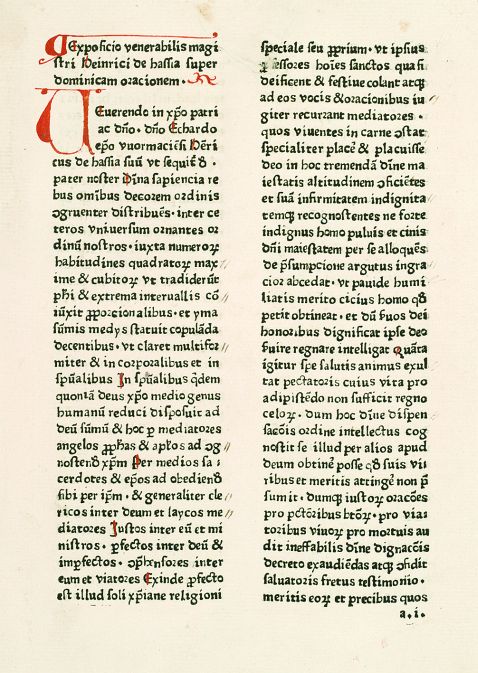 Exposicio venerabilis magi
stri Heinrici de hassia super
dominicam oracionem ·
Reuerendo in xp̄o patri
ac dn̄o · dn̄o Echardo
ep̄o vuormacien̄si Hēri
cus de hassia suū vt sequit̄ ꝺ ·
pater noster Diīna sapiencia re
bus omībus decorem ordinis
ɔgruenter distribuēs · inter ce
teros vniuersum ornantes or
dinū nostros · iuxta numeroꝝ
habitudines quadratoꝝ max
ime & cubitoꝝ vt tradiderūt
ph̄i & extrema interuallis cō
iūxit ꝓporcionalibus · et yma
sūmis medys statuit copulāda
decentibus · vt claret multifor
miter & in corporalibus et in
sp̄ualibus In sp̄ualibus q̄dem
quoniā deus xp̄o medio genus
humanū reduci disposuit ad
deū sūmū & hoc ꝑ mediatores
angelos ꝓph̄as & ap̄los ad ɔg
nostenꝺ xp̄m Per medios sa
cerdotes & ep̄os ad obedienꝺ
sibi per ip̄m · & generaliter cle
ricos inter deum et laycos me
diatores Iustos inter eū et mi
nistros · ꝑfectos inter deū &
imꝑfectos · ɔp̄hensores inter
eum et viatores Exinde ꝓfecto
est illud soli xp̄iane religioni
speciale seu ꝓprium · vt ipsius
ꝓfessores hoīes sanctos quasi
deificent & festiue colant atqꝫ
ad eos vocis & oracionibus iu
giter recurrant mediatores ·
quos viuentes in carne ɔstat
specialiter placē & placuisse
deo in hoc tremendā diīne ma
iestatis altitudinem ɔficiētes
et suā infirmitatem indignita
temqꝫ recognostentes ne forte
indignus homo puluis et cinis
dn̄i maiestatem per se alloquēs
de p̄sumpcione argutus ingra
cior abcedat · vt pauide humi
liatis merito cicius homo qꝺ
petit obtineat · et dū suos dei
honoribus dignificat ipse deo
seruire regnare intelligat Quāta
igitur spe salutis animus exul
tat peccatoris cuius vita pro
adipiscēdo non sufficit regno
celoꝝ · dum hoc diīne dispen
sacōis ordine intellectus cog
nostit se illud per alios apud
deum obtinē posse qꝺ suis vi
ribus et meritis attingē non p̄
sumit · dumqꝫ iustoꝝ oracōes
pro pctōribus btōꝝ · pro via
toribus viuoꝝ pro mortuis au
dit ineffabilis diīne dignacōis
decreto exaudiēdas atqꝫ ɔfidit
saluatoris fretus testimonio ·
meritis eoꝝ et precibus quos
a.i.